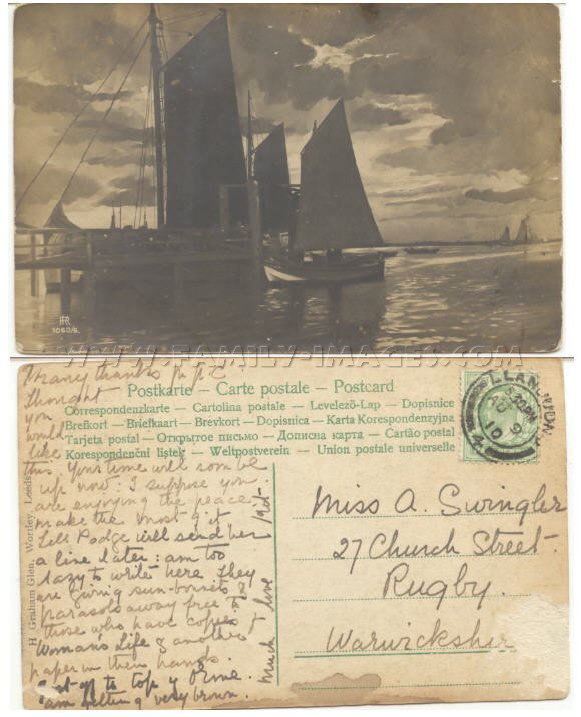 1060/6.
WWW.FAMILY-IMAGES.COM
Many thanks p.p.c
thought
you
would
like
this. Your time will soon be
up now. I suppose you
are enjoying the peace
make the most of it
Tell Podge will send her
a line later: am too
lazy to write here. They
are giving sun-bonnets &
parasols away free to
those who have copies
Woman's Life & another
paper in their hands.
Got up to top of Orme.
am getting very brown.
much love
Postkarte – Carte postale – Postcard
Correspondenzkarte – Cartolina postale – Levelező-Lap – Dopisnice
Brefkort – Briefkaart – Brevkort – Dopisnica – Karta Korespondenzyjna
Tarjeta postal – Открытое письмо – Дописна карта – Cartão postal
Korespondenční lístek – Weltpostverein – Union postale universelle
LLAN
AU 9
10
Miss A. Swingler
27 Church Street
Rugby.
Warwickshir
H. Graham Glen, Wortley, Leeds